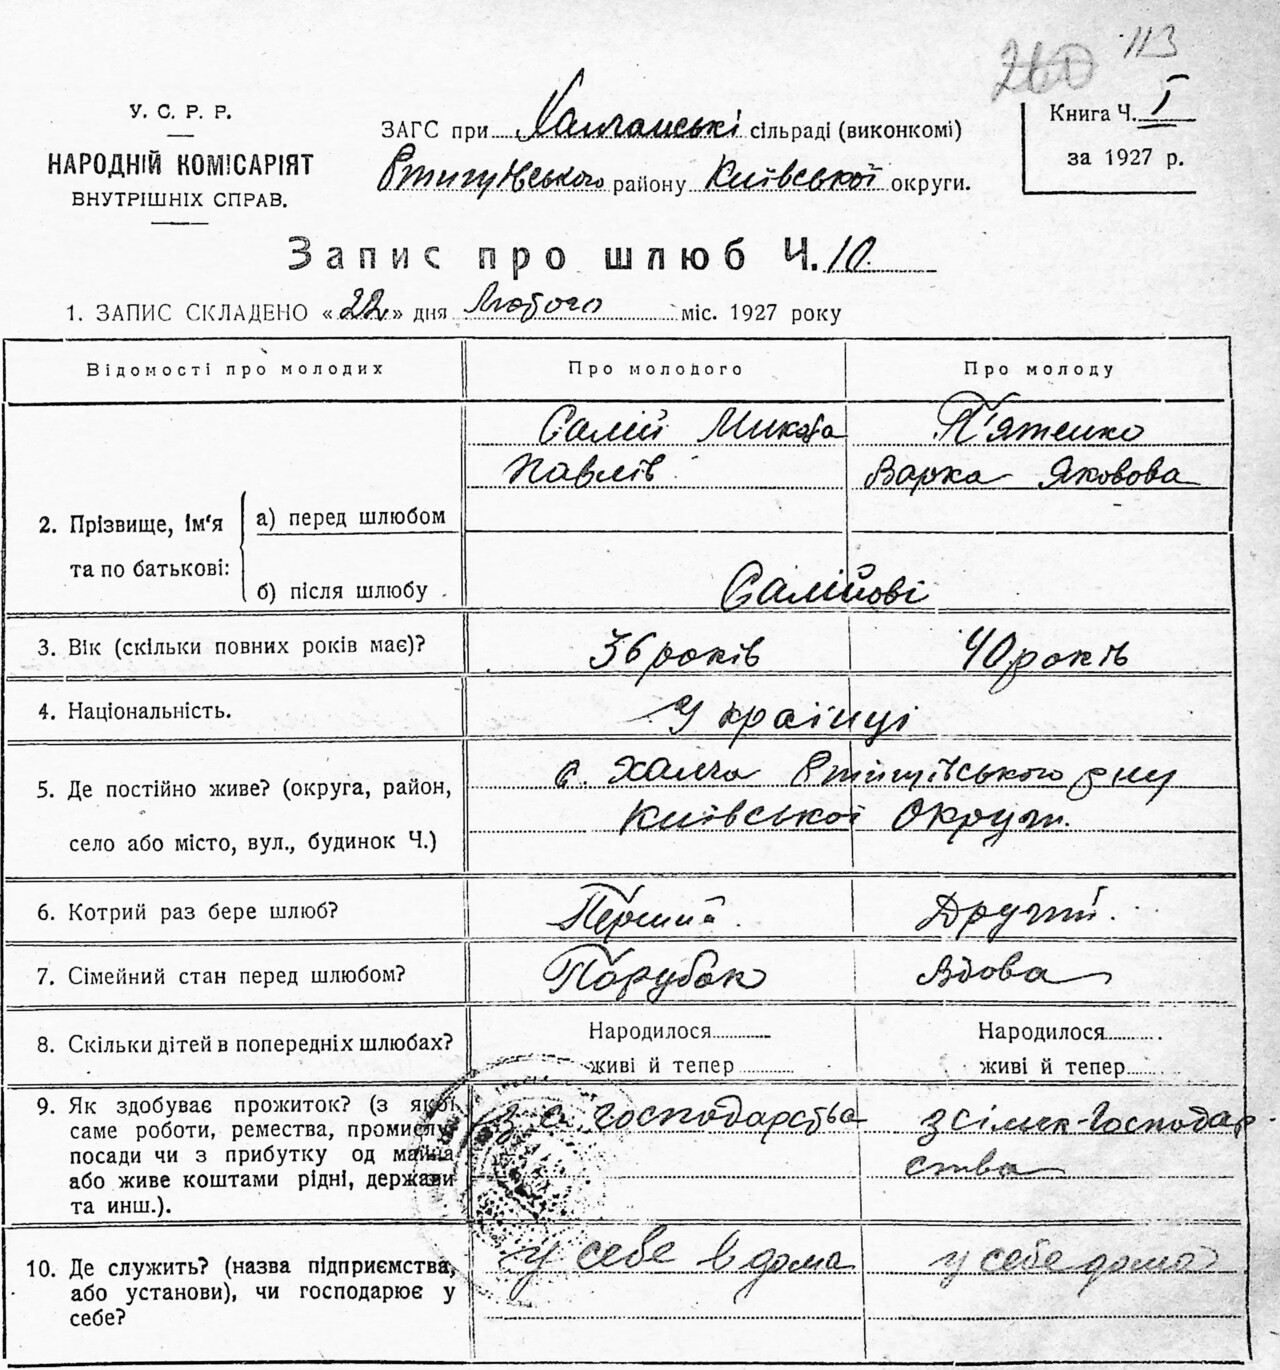 260 113
У. С. Р. Р.
НАРОДНІЙ КОМІСАРІЯТ
ВНУТРІШНІХ СПРАВ.
ЗАГС при Халчанські сільраді (виконкомі)
Ртищівського району Київської округи.
Книга Ч. I
за 1927 р.
Запис про шлюб Ч. 10
1. ЗАПИС СКЛАДЕНО «22» дня Лютого міс. 1927 року
Відомості про молодих Про молодого Про молоду
2. Прізвище, ім'я та по батькові:
а) перед шлюбом
Салій Микола
Павлів
П'ятенко
Варка Яковова
б) після шлюбу Салійові
3. Вік (скільки повних років має)? 36 років 40 років
4. Національність. Українці
5. Де постійно живе? (округа, район,
село або місто, вул., будинок Ч.)
с. Халча Ртищівського р-ну
Київської Округи.
6. Котрий раз бере шлюб? Перший Другий
7. Сімейний стан перед шлюбом? Парубок Вдова
8. Скільки дітей в попередніх шлюбах? Народилося Народилося
живі й тепер живі й тепер
9. Як здобуває прожиток? (з якої
саме роботи, ремества, промислу,
посади чи з прибутку од майна
або живе коштами рідні, держави
та инш.).
з с. господарства
з сільск-господар
ства
10. Де служить? (назва підприємства,
або установи), чи господарює у
себе?
у себе вдома у себе дома